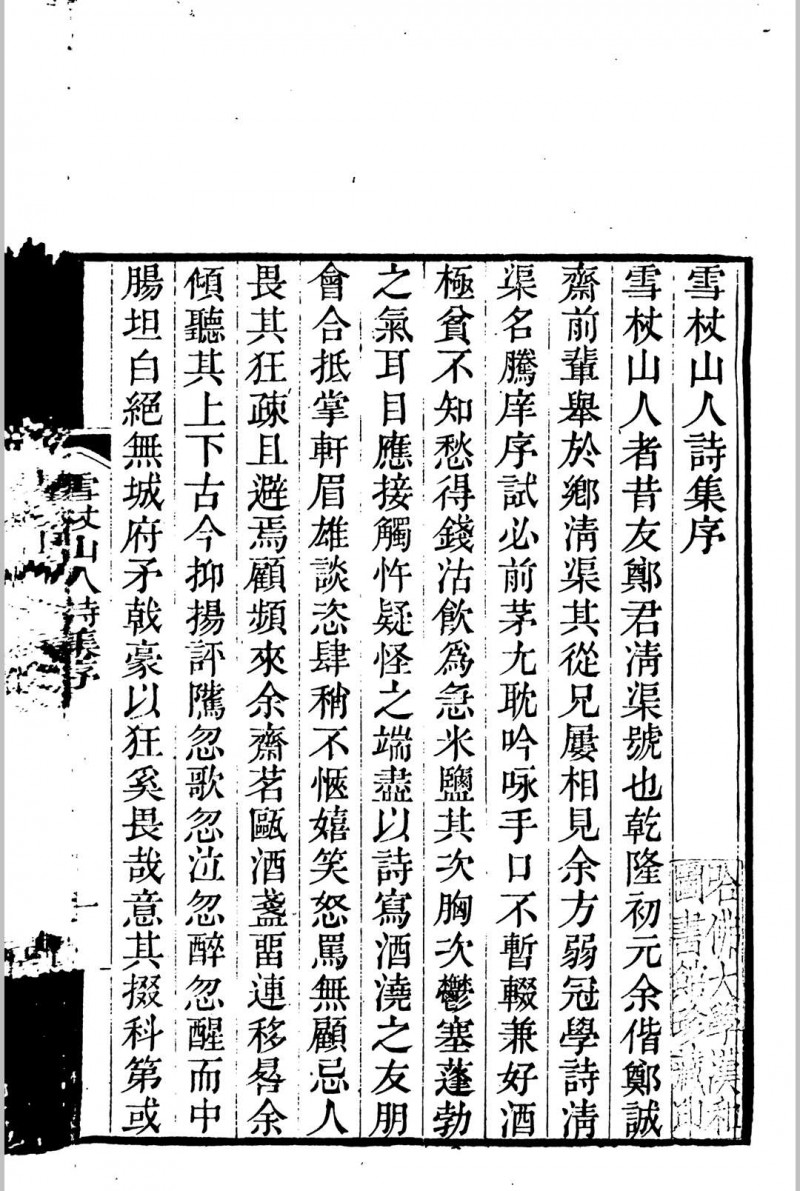 雪杖山人詩集序
雪杖山人者昔友鄭君淸渠號也乾隆初元余偕鄭誠
齋前輩舉於鄉淸渠其從兄屢相見余方弱冠學詩淸
渠名騰庠序試必前茅尢耽吟咏手口不暫輟兼好酒
極貧不知愁得錢沽飮爲急米鹽其次胸次鬱塞蓬勃
之氣耳目應接觸忤疑怪之端盡以詩寫酒澆之友朋
會合抵掌軒眉雄談恣肆稍不愜嬉笑怒罵無顧忌人
畏其狂疎且避焉顧頻來余齋茗甌酒盞畱連移晷余
傾聽其上下古今抑揚評隲忽歌忽泣忽醉忽醒而中
腸坦白絕無城府矛戟豪以狂奚畏哉意其掇科第或
雪杖山人詩集序
一
哈佛大學漢和
圖書館珍藏印